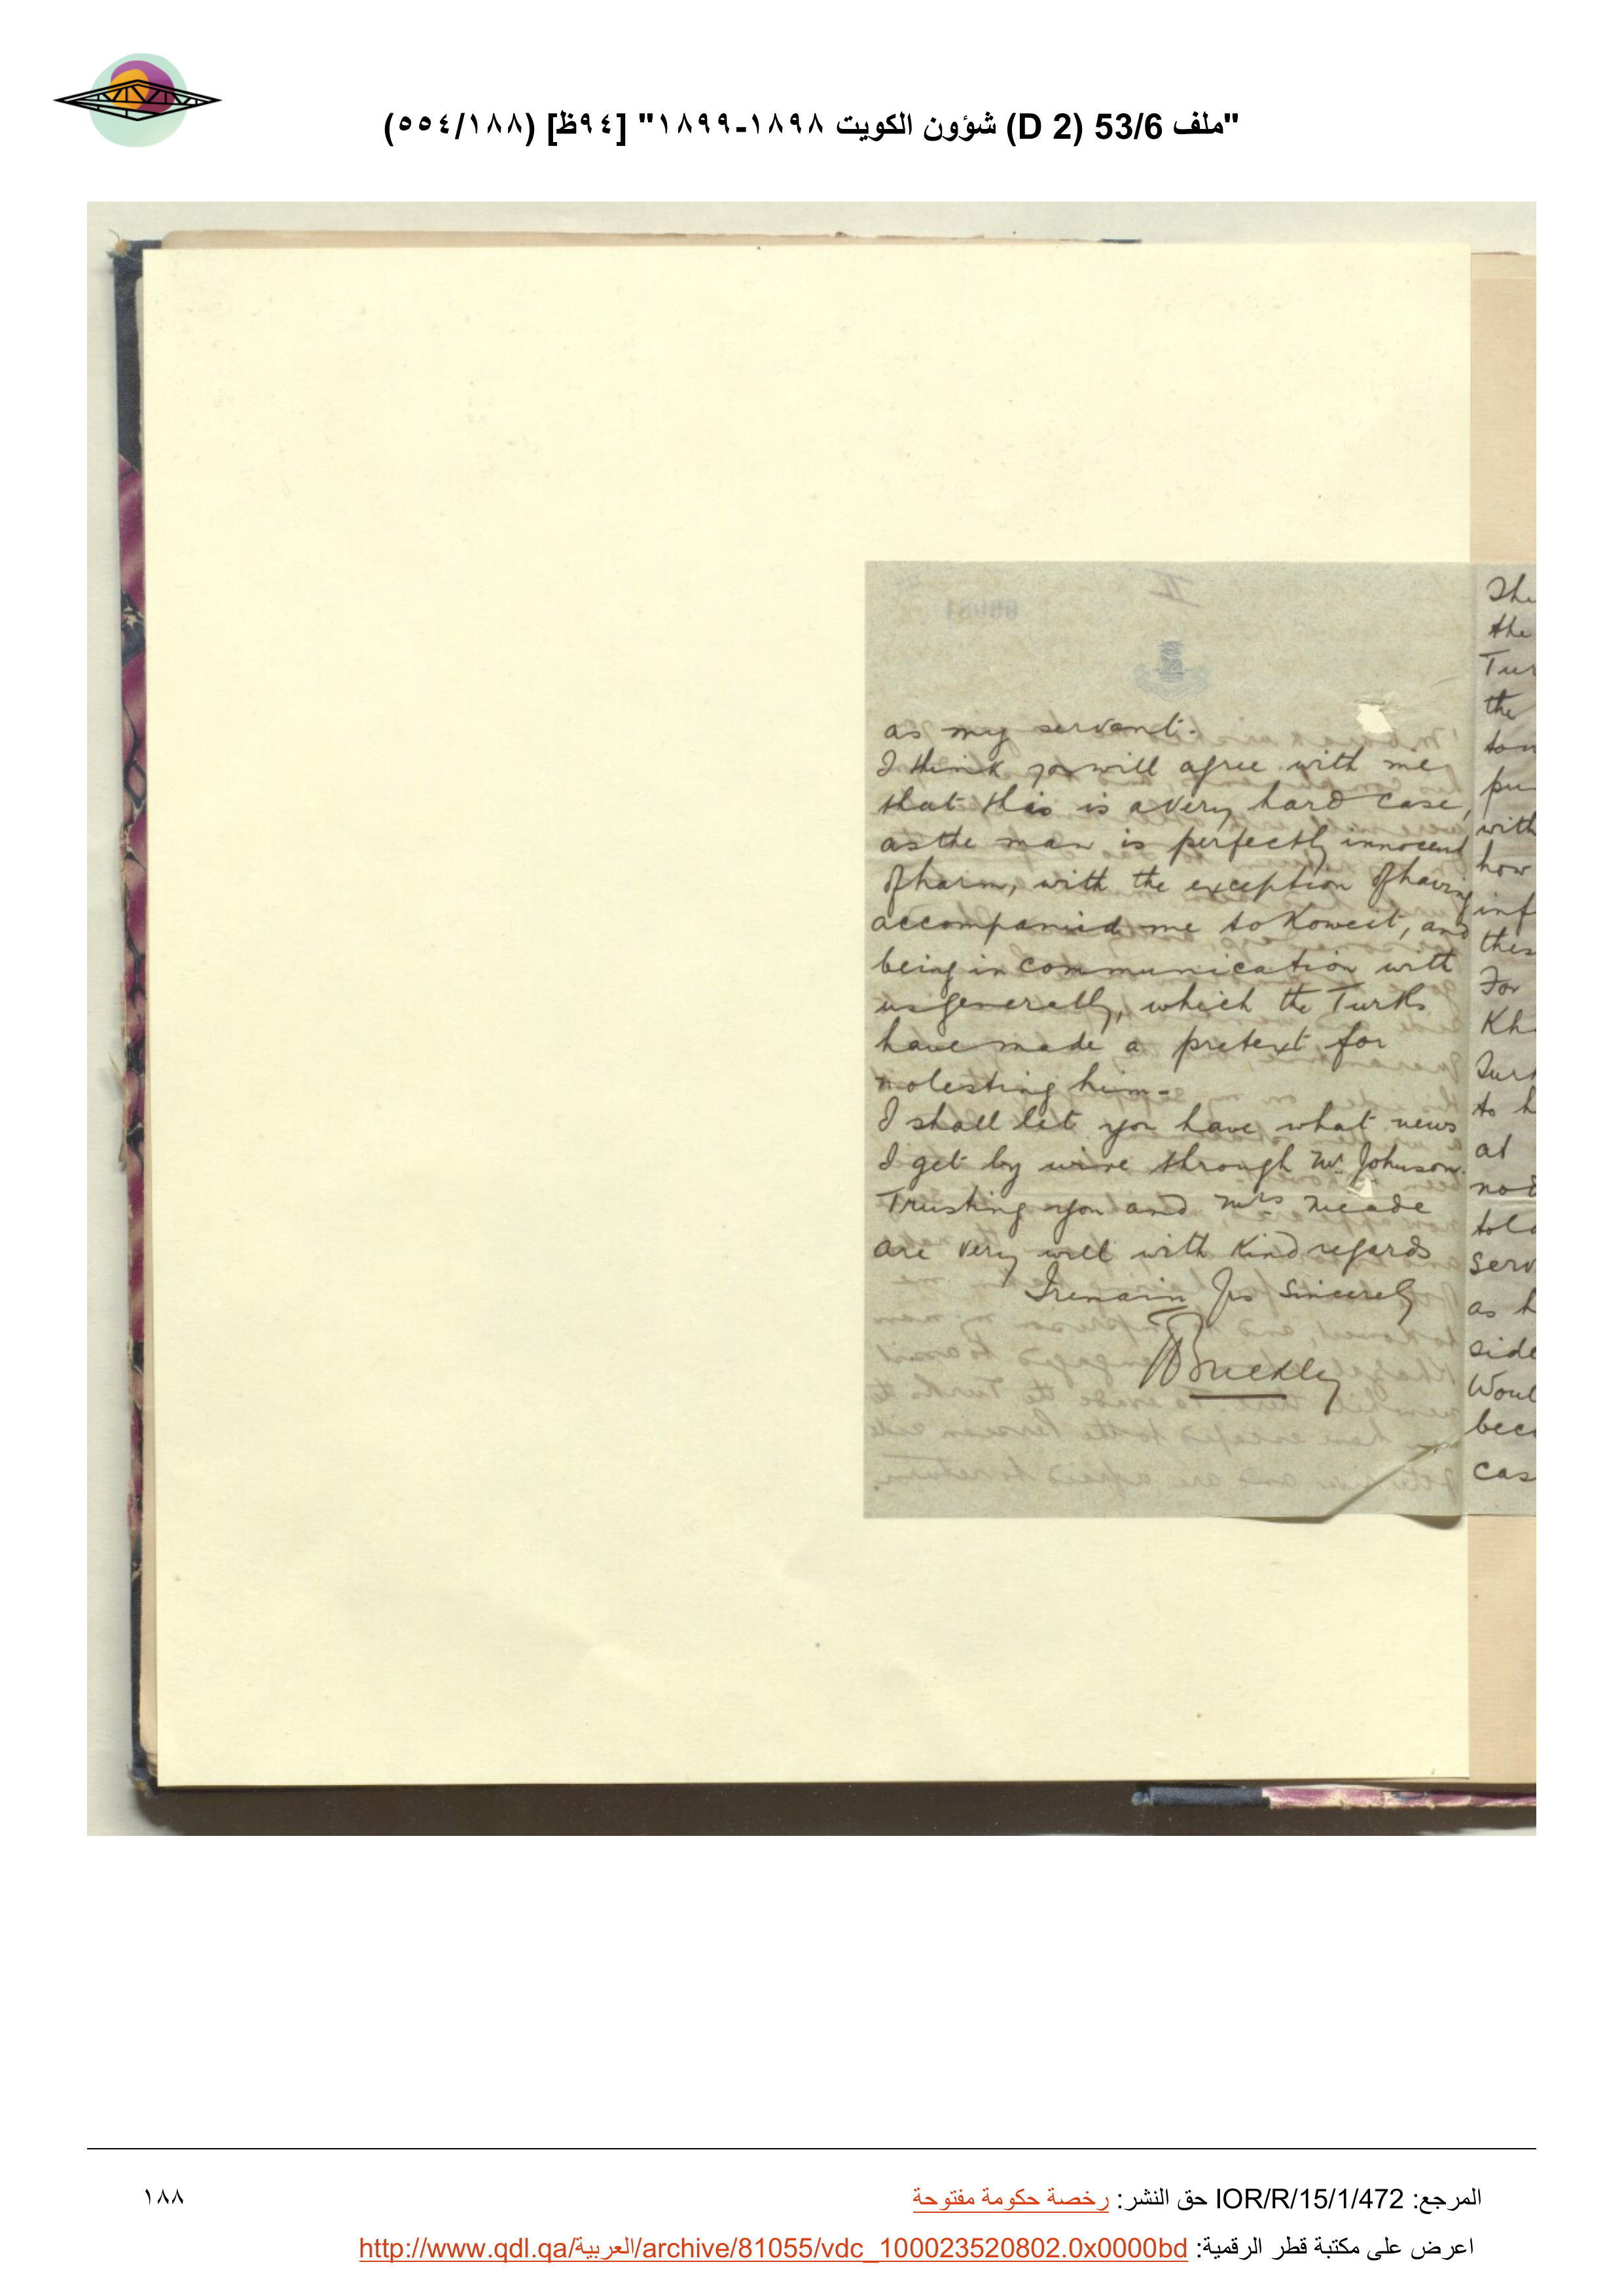 "ملف 53/6 (D 2) شؤون الكويت ١٨٩٨-١٨٩٩" [٩٤ظ] (٥٥٤/١٨٨)
as my servant.
I think you will agree with me
that this is a very hard case,
as the man is perfectly innocent
of harm, with the exception of having
accompanied me to Koweit, and
being in communication with
us generally, which the Turks
have made a pretext for
molesting him-
I shall let you have what news
I get by wire through Mr Johnson.
Trusting you and Mrs Meade
are very well with kind regards
I remain Yrs Sincerely
Buckley
The
the
Tur
the
pu
with
how
inf
thes
For
Kh
Turk
to h
at
not
told
serv
as h
side
Woul
bec
cas
المرجع: IOR/R/15/1/472 حق النشر: رخصة حكومة مفتوحة
١٨٨
اعرض على مكتبة قطر الرقمية: http://www.qdl.qa/العربية/archive/81055/vdc_100023520802.0x0000bd